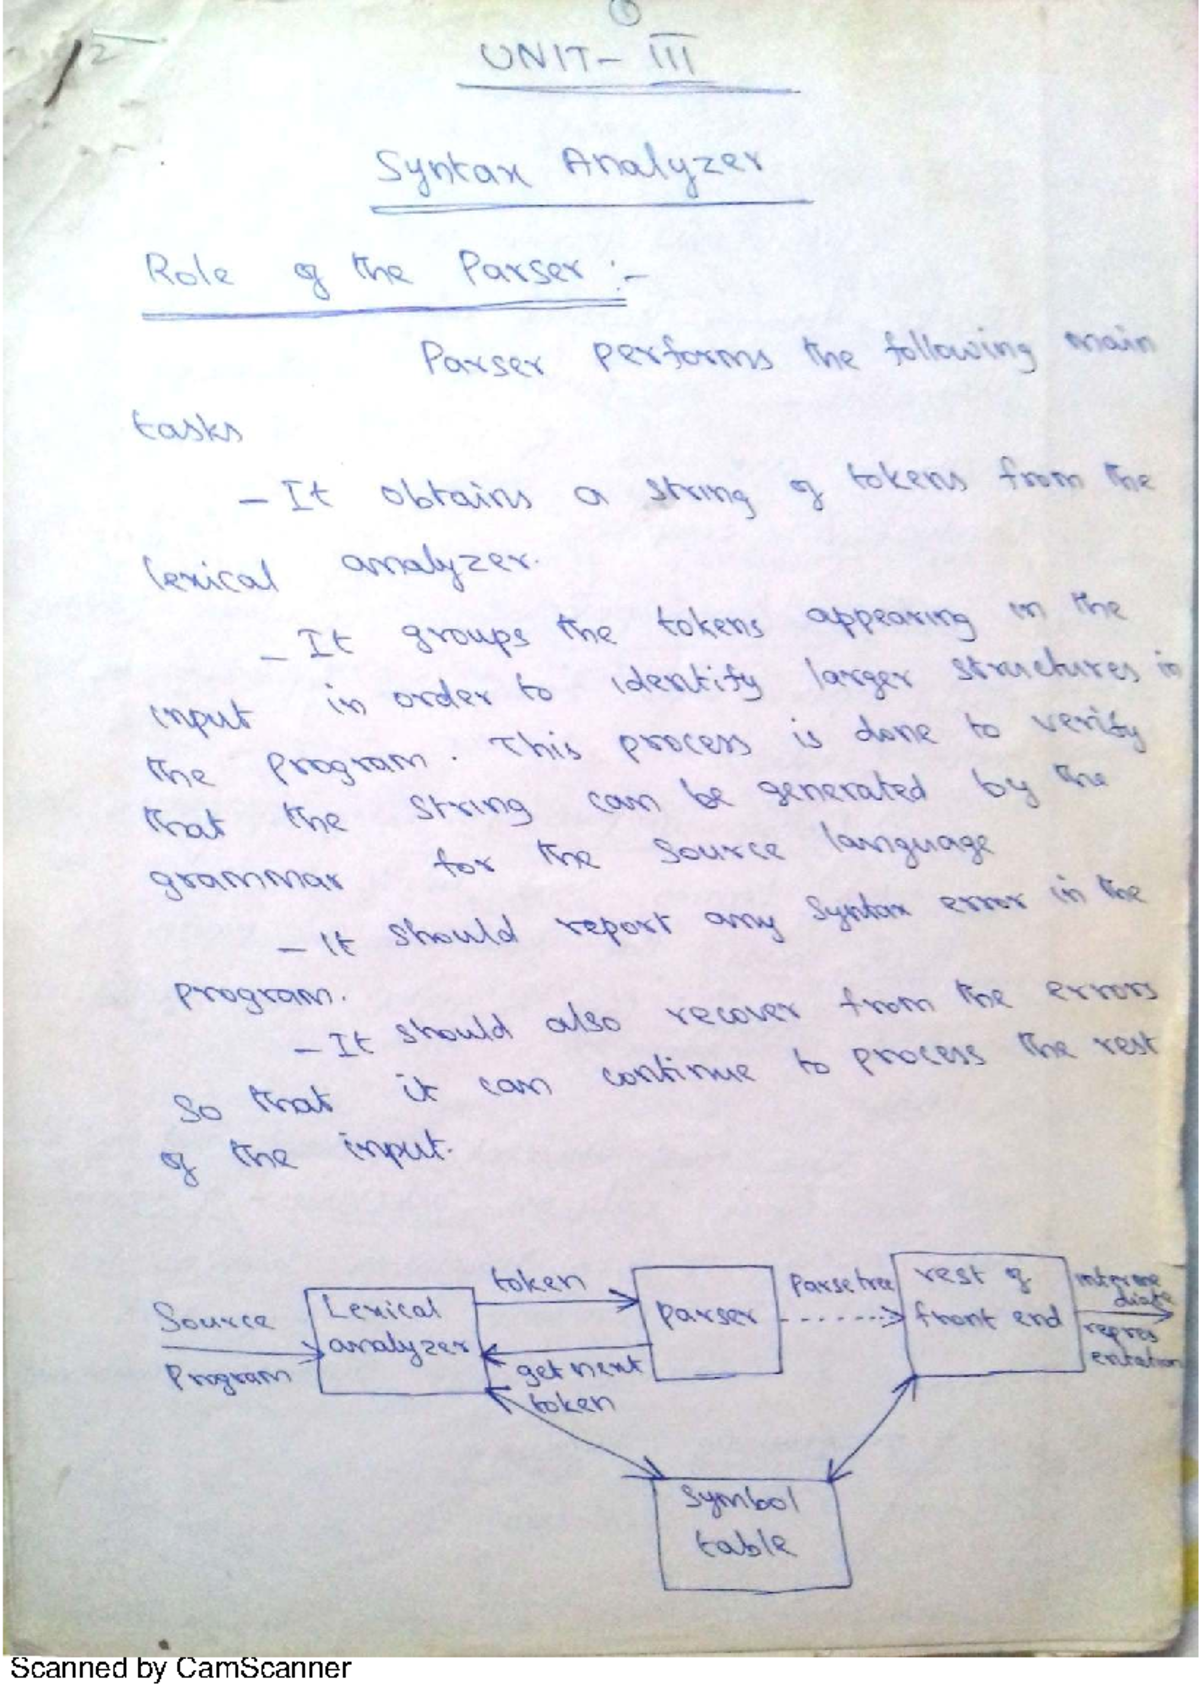 1
UNIT- III
Syntax Analyzer
Role of the Parser :-
Parser performs the following main
tasks
- It obtains a string of tokens from the
lexical analyzer.
- It groups the tokens appearing in the
input in order to identify larger structures in
the program. This process is done to verify
that the string can be generated by the
grammar for the source language
- It should report any syntax error in the
program.
- It should also recover from the errors
so that it can continue to process the rest
of the input.
Source
Program
Lexical
analyzer
token
get next
token
parser
Parse tree
rest of
front end
interme
diate
repres
entation
Symbol
table
Scanned by CamScanner